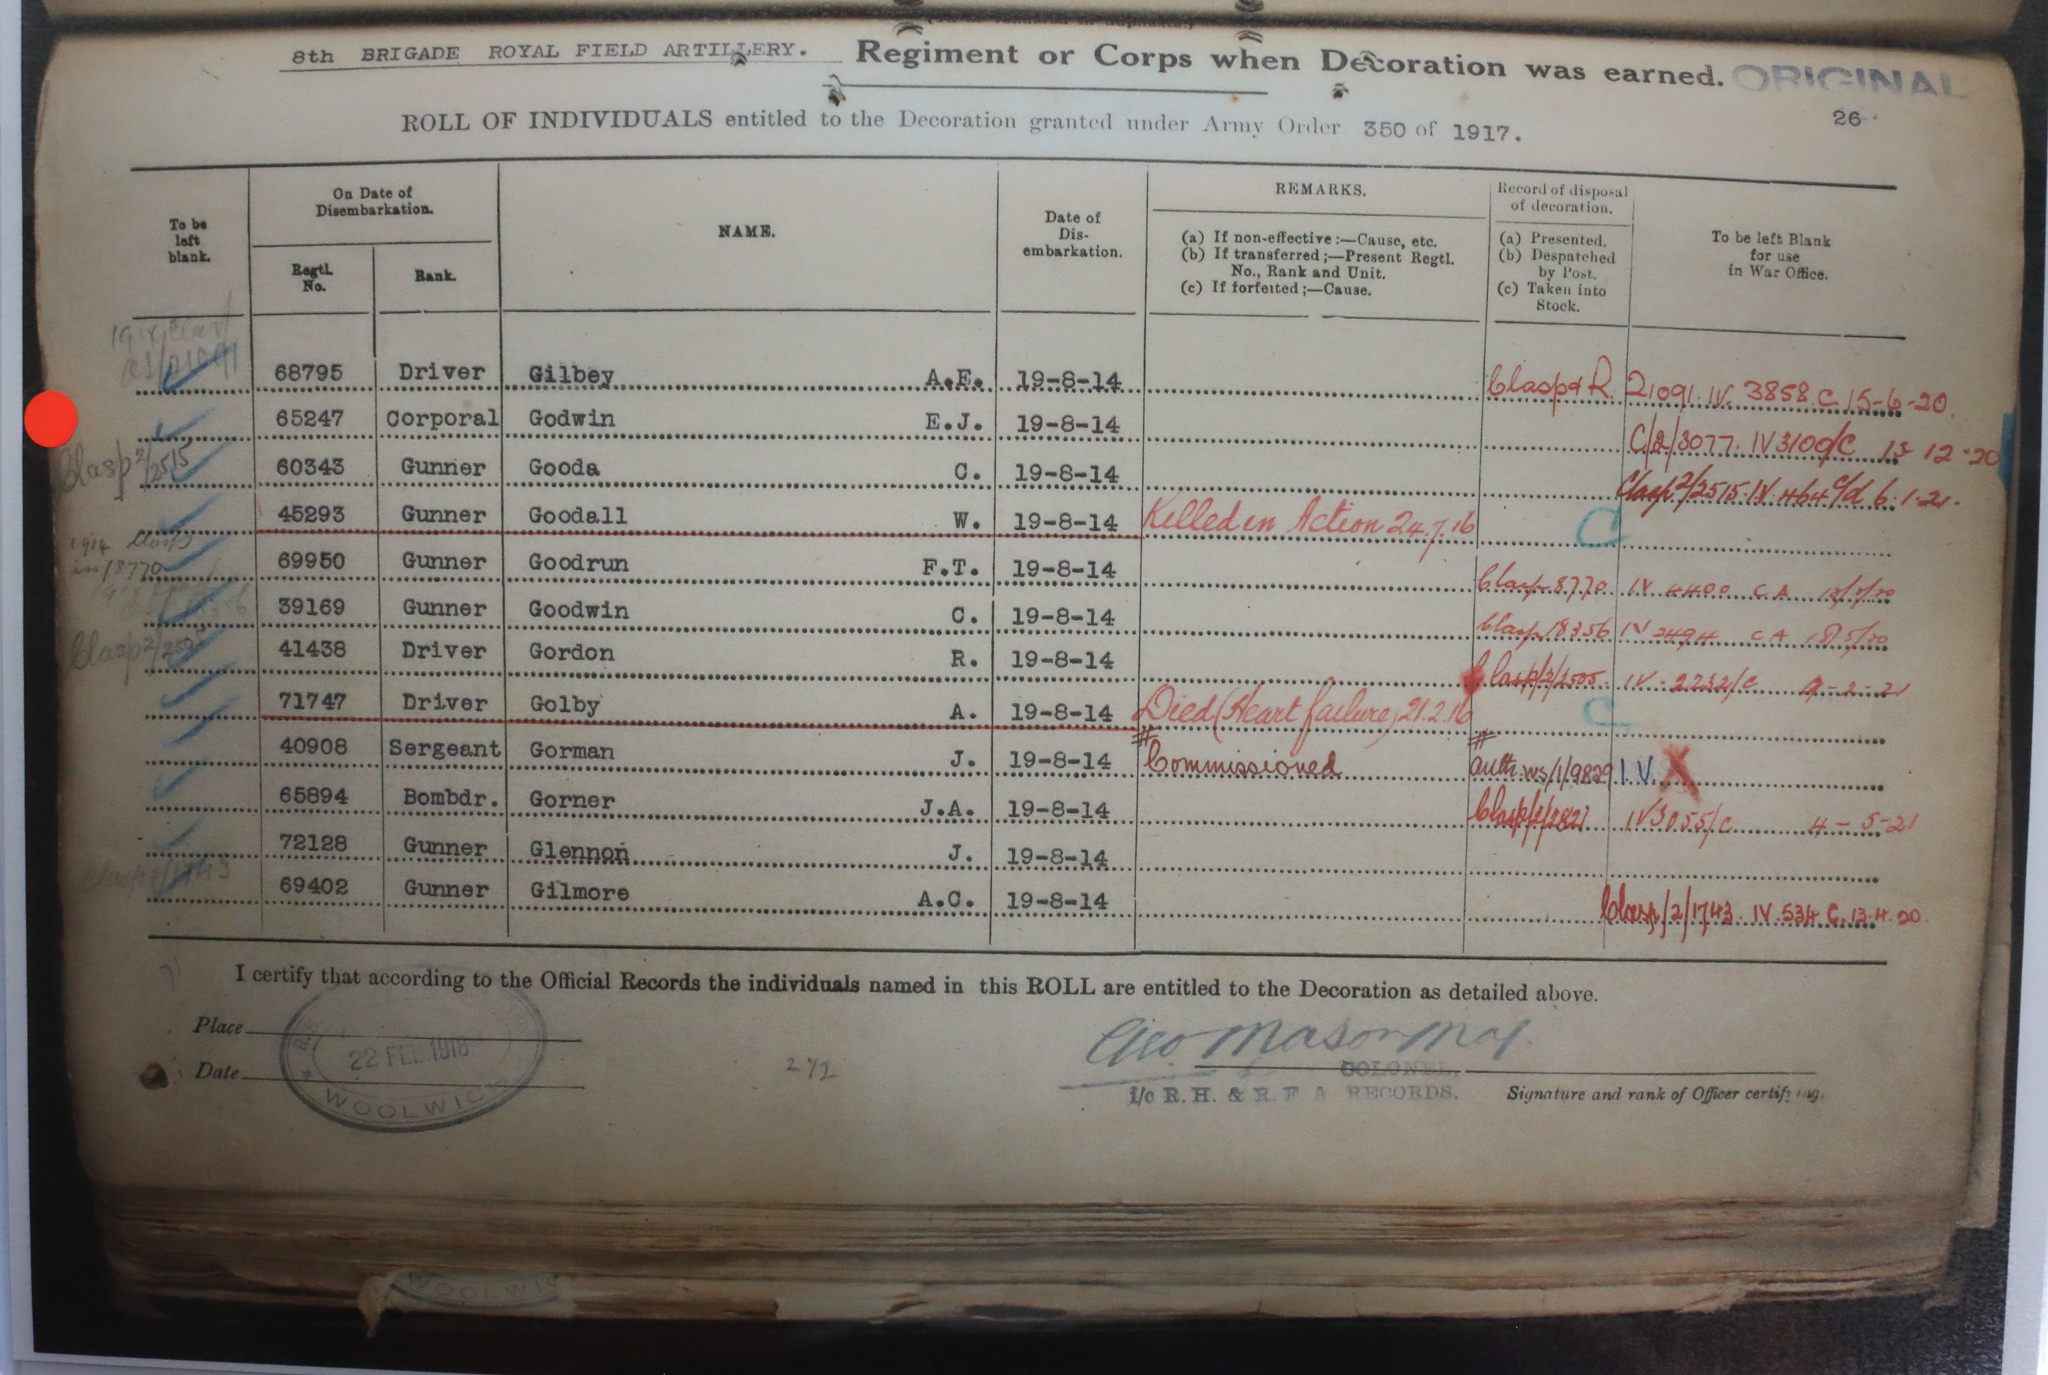 8th BRIGADE ROYAL FIELD ARTILLERY. Regiment or Corps when Decoration was earned. ORIGINAL
ROLL OF INDIVIDUALS entitled to the Decoration granted under Army Order 350 of 1917. 26
To be left blank.
On Date of Disembarkation.
Regtl. No.
Rank.
NAME.
Date of Dis-embarkation.
REMARKS.
(a) If non-effective:—Cause, etc.
(b) If transferred;—Present Regtl. No., Rank and Unit.
(c) If forfeited;—Cause.
Record of disposal of decoration.
(a) Presented.
(b) Despatched by Post.
(c) Taken into Stock.
To be left Blank for use in War Office.
68795 Driver Gilbey A.E. 19-8-14 Clasp & R. 21091.IV. 3858.C 15-6-20.
65247 Corporal Godwin E.J. 19-8-14 C/2/3077. IV3100/C 13-12-20
Clasp 2/2515 60343 Gunner Gooda C. 19-8-14 Clasp 2/2515.IV.464 c/d 6.1-21.
45293 Gunner Goodall W. 19-8-14 Killed in Action 24.7.16 C
1914 Clasp 18770 69950 Gunner Goodrun F.T. 19-8-14 Clasp 8770 IV 4400 CA
39169 Gunner Goodwin C. 19-8-14 Clasp 18356 IV 2494 CA 18/5/20
Clasp 2/2505 41438 Driver Gordon R. 19-8-14 Clasp/2/2505. IV-2232/C 9-2-21
71747 Driver Golby A. 19-8-14 Died (Heart failure) 21.2.16 C
40908 Sergeant Gorman J. 19-8-14 # Commissioned # Auth: WS/1/9829 I.V. X
65894 Bombdr. Gorner J.A. 19-8-14 Clasp/2/2821 IV3055/C 4-5-21
72128 Gunner Glennon J. 19-8-14
69402 Gunner Gilmore A.C. 19-8-14 Clasp/2/1743. IV.534.C.13.4.20
I certify that according to the Official Records the individuals named in this ROLL are entitled to the Decoration as detailed above.
Place
Date
22 FEB 1918
WOOLWICH
Geo Mason Maj.
COLONEL.
i/c R. H. & R. F A RECORDS.
Signature and rank of Officer certifying.
WOOLWIC